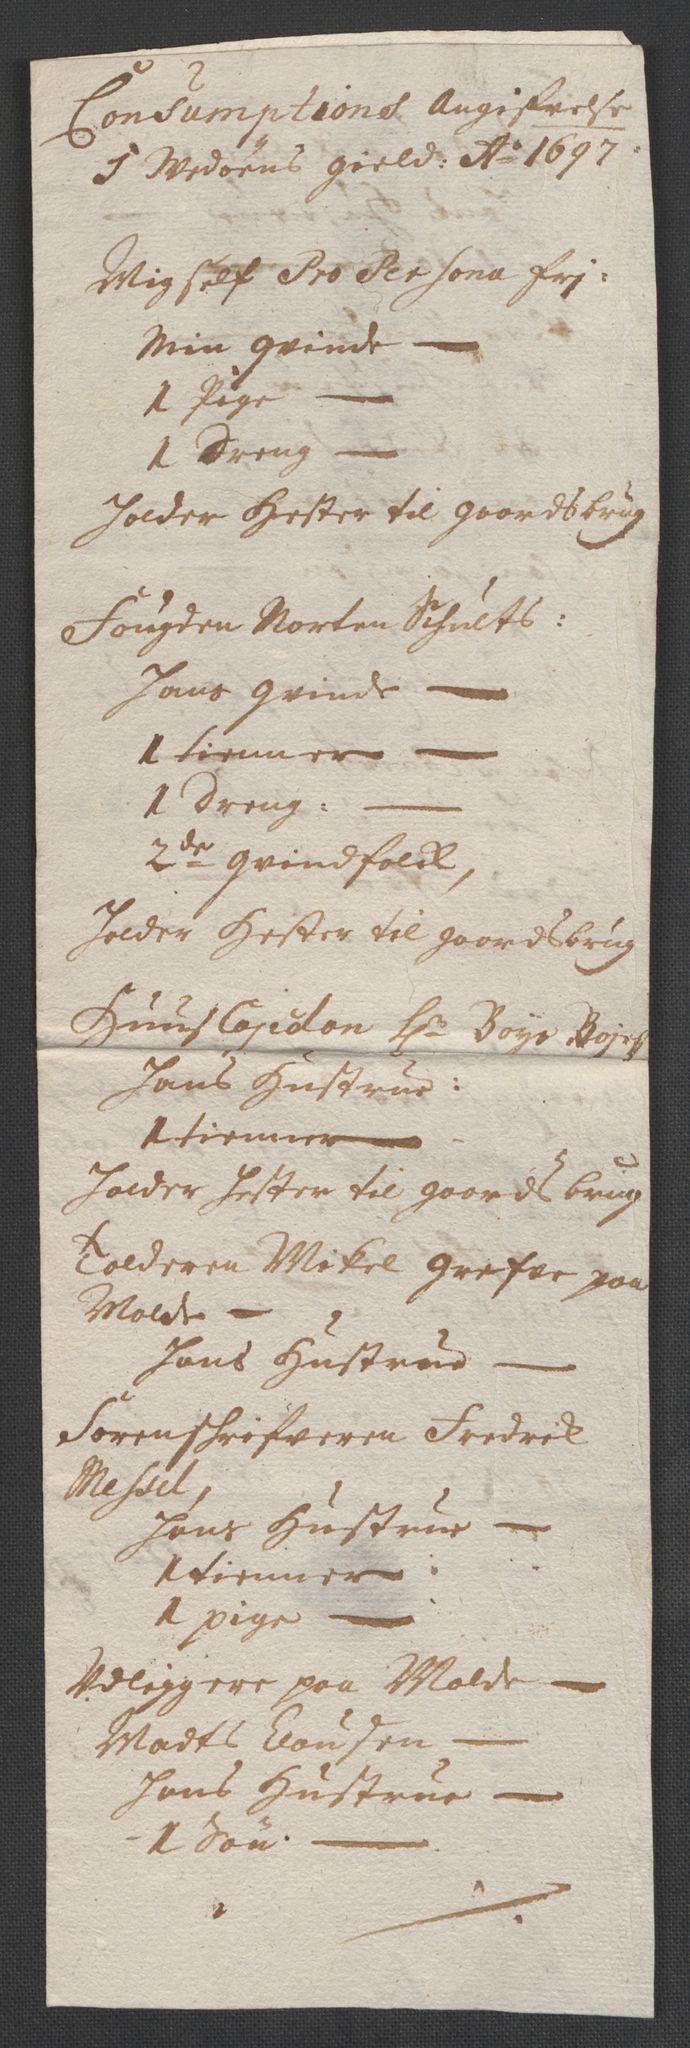 Consumptions Angifvelse
I Wedøens gield: Ao 1697
Migself Pro Persona frj:
Min qvinde —
1 Pige —
1 Dreng —
holder Hester til gaardsbrug
Fougden Morten Schults:
hans qvinde —
1 tienner —
1 Dreng: —
2de qvindfolck,
holder Hester til gaardsbrug
Huus Capidon Hr Boye Bojes
hans Hustrue:
1 tienner —
holder hester til gaards brug
Tolderen Mikel Grefve paa
Molde —
hans Hustrue —
Sorenschrifveren Fredrik
Messel,
hans Hustrue —
1 tienner
1 pige —
Udliggere paa Molde —
Madts Clausen —
hans Hustrue —
1 Søn. —